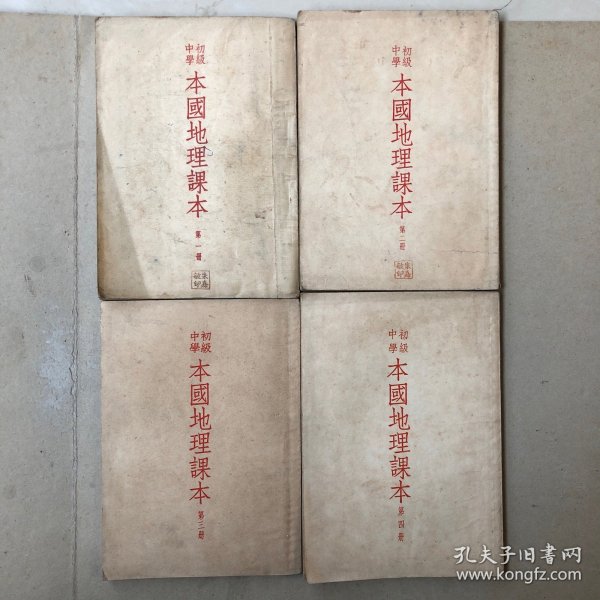 初級
中學
本國地理課本
第一冊
初級
中學
本國地理課本
第二冊
初級
中學
本國地理課本
第三冊
初級
中學
本國地理課本
第四冊
孔夫子旧书网
www.kongfz.com